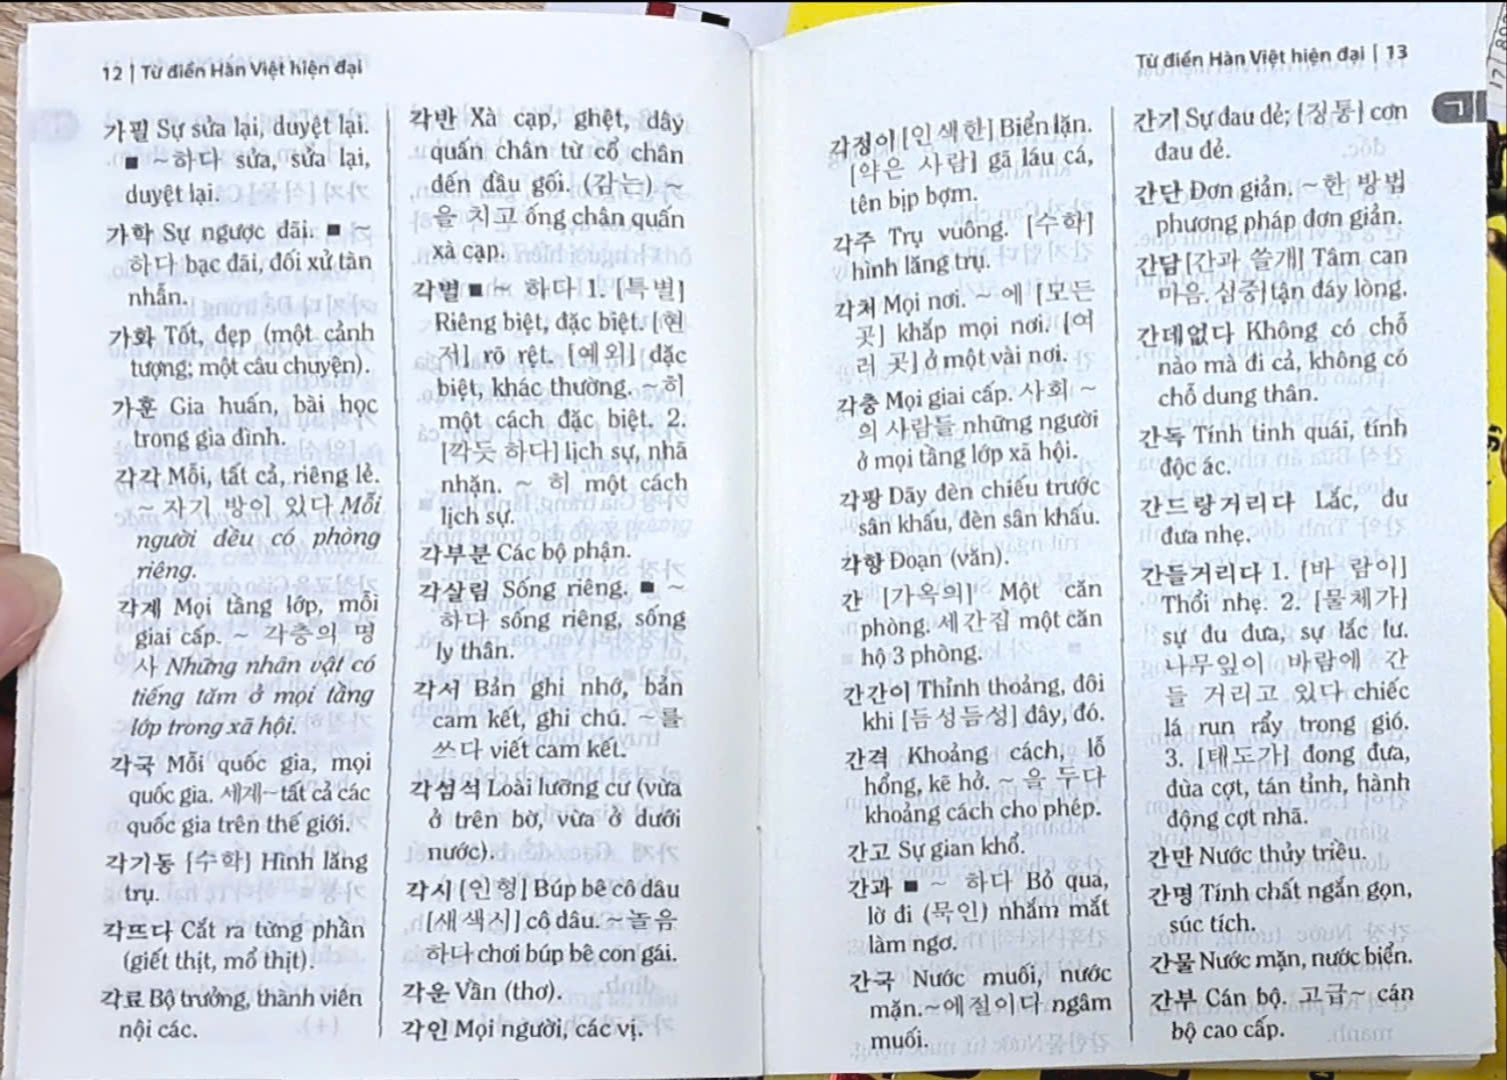 12 | Từ điển Hàn Việt hiện đại
가필 Sự sửa lại, duyệt lại.
■ ~하다 sửa, sửa lại,
duyệt lại.
가학 Sự ngược đãi. ■ ~
하다 bạc đãi, đối xử tàn
nhẫn.
가화 Tốt, đẹp (một cảnh
tượng; một câu chuyện).
가훈 Gia huấn, bài học
trong gia đình.
각각 Mỗi, tất cả, riêng lẻ.
~ 자기 방이 있다 Mỗi
người đều có phòng
riêng.
각계 Mọi tầng lớp, mỗi
giai cấp. ~ 각층의 명
사 Những nhân vật có
tiếng tăm ở mọi tầng
lớp trong xã hội.
각국 Mỗi quốc gia, mọi
quốc gia. 세계~ tất cả các
quốc gia trên thế giới.
각기둥 [수학] Hình lăng
trụ.
각뜨다 Cắt ra từng phần
(giết thịt, mổ thịt).
각료 Bộ trưởng, thành viên
nội các.
각반 Xà cạp, ghệt, dây
quấn chân từ cổ chân
đến đầu gối. (감는) ~
을 치고 ống chân quấn
xà cạp.
각별 ■ ~ 하다 1. [특별]
Riêng biệt, đặc biệt. [현
저] rõ rệt. [예외] đặc
biệt, khác thường. ~히
một cách đặc biệt. 2.
[깍듯 하다] lịch sự, nhã
nhặn. ~ 히 một cách
lịch sự.
각부분 Các bộ phận.
각살림 Sống riêng. ■ ~
하다 sống riêng, sống
ly thân.
각서 Bản ghi nhớ, bản
cam kết, ghi chú. ~를
쓰다 viết cam kết.
각섬석 Loài lưỡng cư (vừa
ở trên bờ, vừa ở dưới
nước).
각시 [인형] Búp bê cô dâu
[새색시] cô dâu. ~놀음
하다 chơi búp bê con gái.
각운 Vần (thơ).
각인 Mọi người, các vị.
Từ điển Hàn Việt hiện đại | 13
ㄱ
각정이 [인색한] Biển lận.
[약은 사람] gã láu cá,
tên bịp bợm.
각주 Trụ vuông. [수학]
hình lăng trụ.
각처 Mọi nơi. ~ 에 [모든
곳] khắp mọi nơi. [여
러 곳] ở một vài nơi.
각층 Mọi giai cấp. 사회 ~
의 사람들 những người
ở mọi tầng lớp xã hội.
각광 Dãy đèn chiếu trước
sân khấu, đèn sân khấu.
각항 Đoạn (văn).
간 [가옥의] Một căn
phòng. 세간집 một căn
hộ 3 phòng.
간간이 Thỉnh thoảng, đôi
khi [듬성듬성] đây, đó.
간격 Khoảng cách, lỗ
hổng, kẽ hở. ~ 을 두다
khoảng cách cho phép.
간고 Sự gian khổ.
간과 ■ ~ 하다 Bỏ qua,
lờ đi (묵인) nhắm mắt
làm ngơ.
간국 Nước muối, nước
mặn.~에 절이다 ngâm
muối.
간기 Sự đau đẻ; [정통] cơn
đau đẻ.
간단 Đơn giản, ~한 방법
phương pháp đơn giản.
간담 [간과 쓸개] Tâm can
마음. 심중] tận đáy lòng.
간데없다 Không có chỗ
nào mà đi cả, không có
chỗ dung thân.
간독 Tính tinh quái, tính
độc ác.
간드랑거리다 Lắc, đu
đưa nhẹ.
간들거리다 1. [바 람이]
Thổi nhẹ. 2. [물체가]
sự đu đưa, sự lắc lư.
나무잎이 바람에 간
들 거리고 있다 chiếc
lá run rẩy trong gió.
3. [태도가] đong đưa,
đùa cợt, tán tỉnh, hành
động cợt nhã.
간만 Nước thủy triều.
간명 Tính chất ngắn gọn,
súc tích.
간물 Nước mặn, nước biển.
간부 Cán bộ. 고급~ cán
bộ cao cấp.